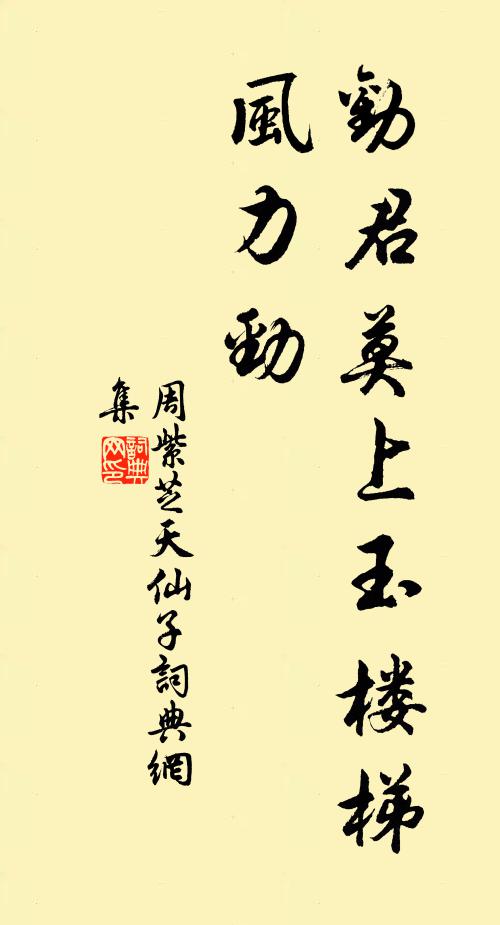 勸君莫上玉楼梯
風力勁
周紫芝天仙子詞典網
集
詞典
网印